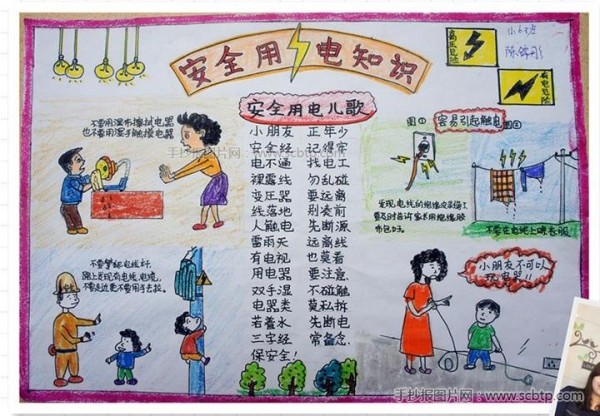 安全用电知识
高压危险
小6班
有电危险
不要用湿布擦拭电器
也不要用湿手触摸电器
安全用电儿歌
小朋友 正年少
安全经 记得牢
电不通 找电工
裸露线 勿乱碰
变压器 要远离
线落地 别凑前
人触电 先断源
雷雨天 远离线
有电视 也莫看
用电器 要注意
双手湿 不碰触
电器类 莫私拆
若着水 先断电
三字经 常备念
保安全!
图① 容易引起触电 图②
发现电线的绝缘皮
要及时告诉家长用绝缘胶
布包好。
不要在电线上晒衣服
不要攀爬电线杆,
路上发现有电线,电缆,
不要走近更不要用手去拉。
小朋友不可以
玩电器!!
手抄报图片网:www.scbtp.com
手抄报图片网:www.scbtp.com